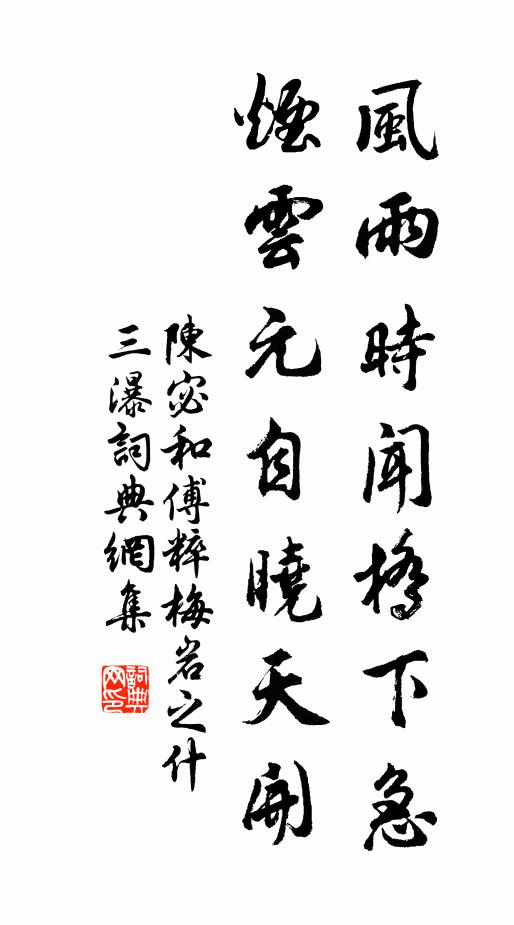 風雨時聞橋下急
煙雲元自曉天開
陳宓和傅粹梅岩之什
三瀑詞典網集
詞典
网印